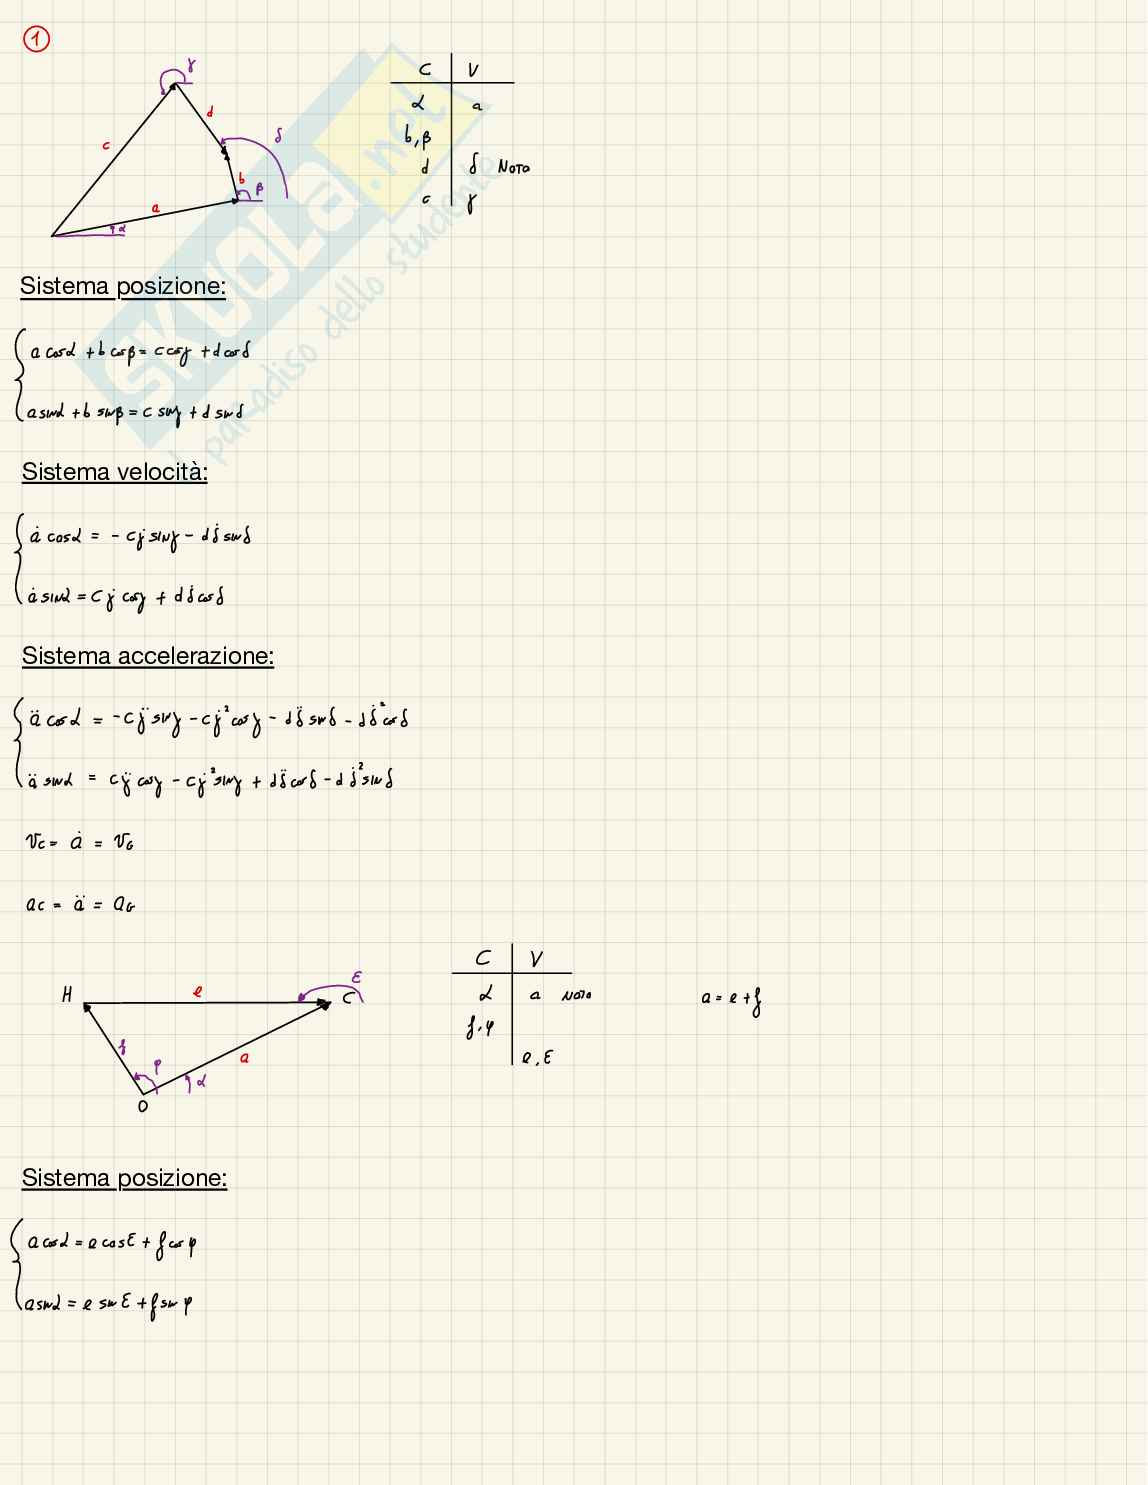 1
γ
d
c
δ
b
β
a
α
C V
α a
b, β
d δ NOTO
c γ
SKUOLA.not
il paradiso dello studente
Sistema posizione:
a cosα + b cosβ = c cosγ + d cosδ
a sinα + b sinβ = c sinγ + d sinδ
Sistema velocità:
ȧ cosα = - cγ̇ sinγ - dδ̇ sinδ
ȧ sinα = cγ̇ cosγ + dδ̇ cosδ
Sistema accelerazione:
ä cosα = -cγ̈ sinγ - cγ̇² cosγ - dδ̈ sinδ - dδ̇² cosδ
ä sinα = cγ̈ cosγ - cγ̇² sinγ + dδ̈ cosδ - dδ̇² sinδ
vc = ȧ = vG
ac = ä = aG
H e ε C
f φ a α
O
C V
α a NOTO
f, φ
e, ε
a = e + f
Sistema posizione:
a cosα = e cosε + f cosφ
a sinα = e sinε + f sinφ